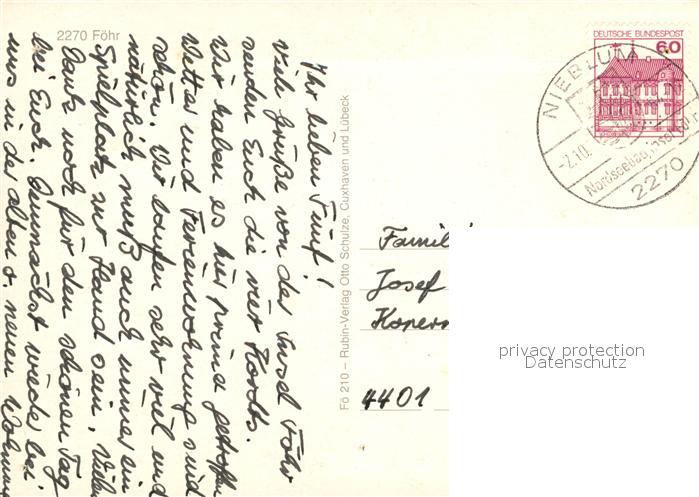 2270 Föhr
Ihr lieben Fünf!
Viele Grüße von der Insel Föhr
senden Euch die vier Hardts.
Wir haben es hier prima getroffen
Wetter und Ferienwohnung sind
schön. Wir laufen sehr viel und
natürlich muß auch immer ein
Spielplatz zur Hand sein. Vielen
Dank noch für den schönen Tag
bei Euch. Demnächst wieder bei
uns in der alten o. neuen Wohnun
Fö 210 – Rubin-Verlag Otto Schulze, Cuxhaven und Lübeck
DEUTSCHE BUNDESPOST
60
NIEBLUM
-2.10.
Nordseebad, Insel
2270
Famili
Josef
Kopern
4401
privacy protection
Datenschutz